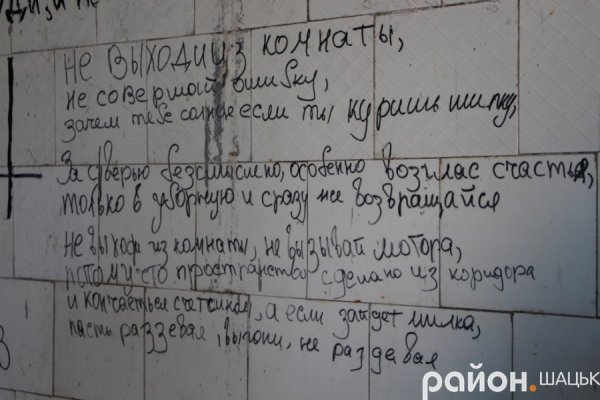 не выходи из комнаты,
не совершай ошибку,
зачем тебе солнце если ты куришь шипку,
За дверью бессмысленно, особенно возглас счастья,
только в уборную и сразу же возвращайся
не выходи из комнаты, не вызывай мотора,
потому что пространство сделано из коридора
и кончается счетчиком, а если зайдет милка,
пасть раззевая, выгони, не раздевая
район.ШАЦЬК